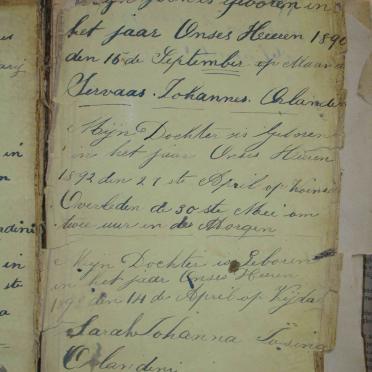 Mijn Zoon is geboren in
het jaar Onses Heeren 1890
den 15 de September op Maan
Servaas Johannes Orlandini
Mijn Dochter is Geboren
in het jaar Onses Heeren
1892 den 21 ste April op
Overleden de 30 ste Mei om
twee uur in de Morgen
Mijn Dochter is Geboren
in het jaar Onses Heeren
den 14 de April op Vrijdag
Sarah Johanna
Orlandini
in
in
ste